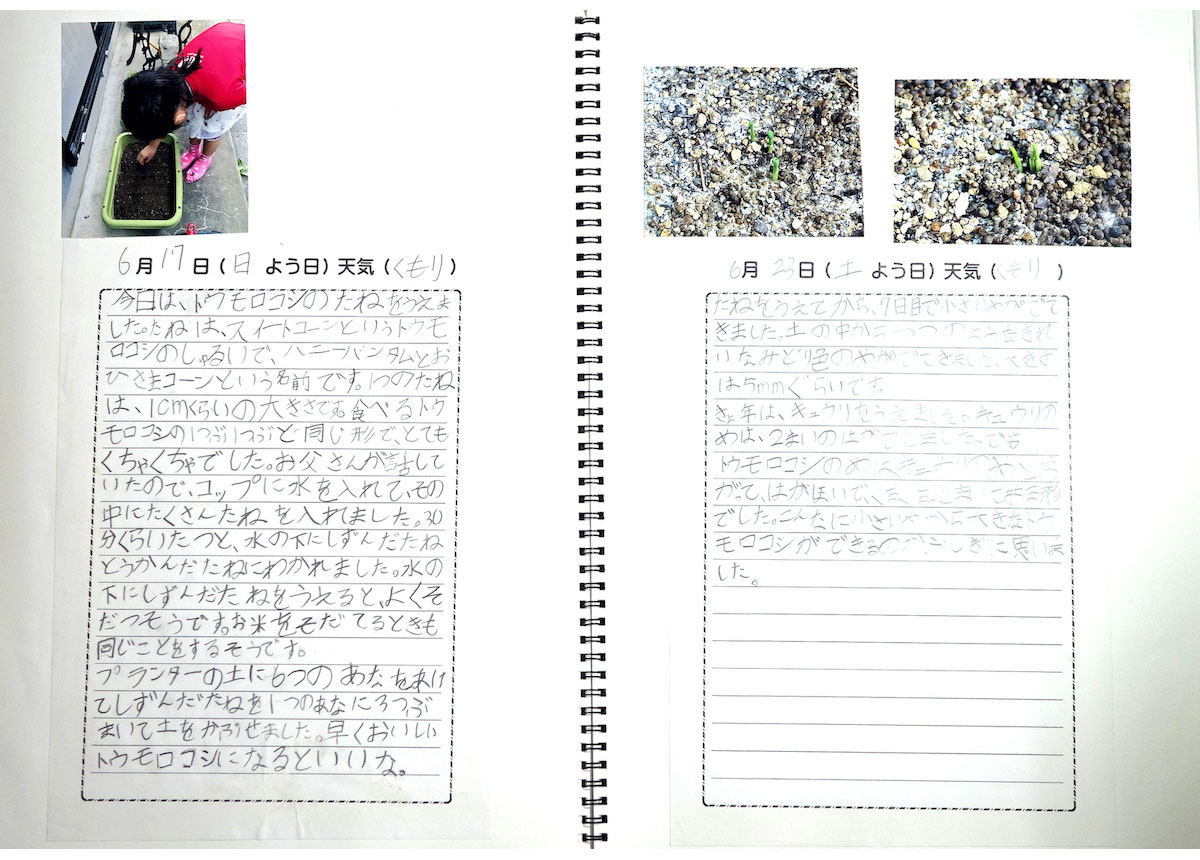 6月17日(日よう日)天気(くもり)
今日は、トウモロコシのたねをうえま
した。たねは、スイートコーンというトウモ
ロコシのしゅるいで、ハニーバンタムとお
ひさまコーンという名前です。1つのたね
は、1cmくらいの大きさです。食べるトウ
モロコシのつぶつぶと同じ形で、とても
くちゃくちゃでした。お父さんが話して
いたので、コップに水を入れて、その
中にたくさんたねを入れました。30
分くらいたつと、水の下にしずんだたね
とうかんだたねにわかれました。水の
下にしずんだたねをうえると、よくそ
だつそうです。お米をそだてるときも
同じことをするそうです。
プランターの土に6つのあなをあけ
てしずんだたねを1つのあなに3つぶ
まいて土をかぶせました。早くおいしい
トウモロコシになるといいな。
6月23日(土よう日)天気(くもり)
たねをうえてから、7日目で小さいめがでて
きました。土の中から一つのようなきれ
いなみどり色のめがでてきました。大きさ
は5mmぐらいです
きょ年は、キュウリをうえました。キュウリの
めは、2まいのはがでてました。でも
トウモロコシのめはキュウリのめとち
がって、はがほいで、
でした。こんなに小さいめから大きなトウ
モロコシができるのがふしぎに思いま
した。